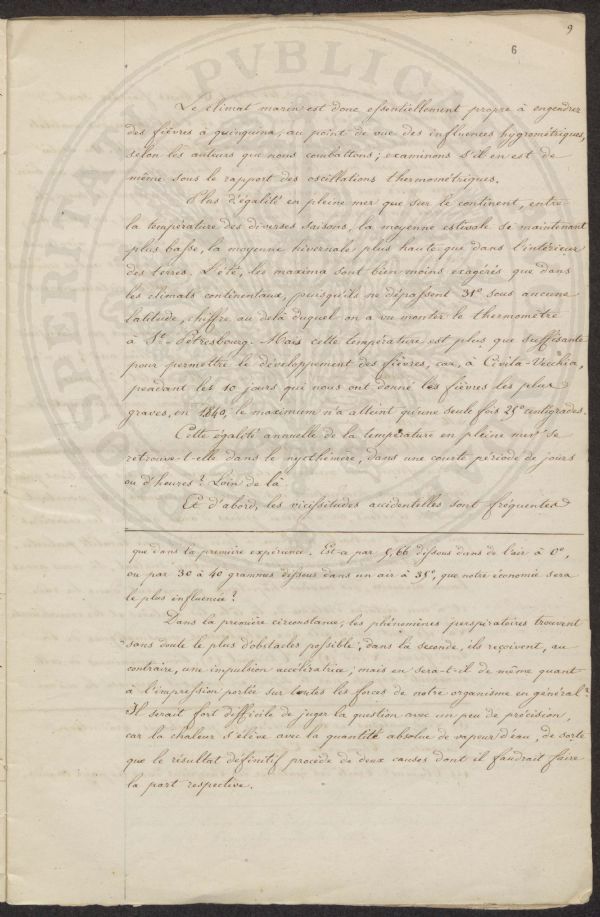 9
6
Le climat marin est donc essentiellement propre à engendrer
des fièvres à quinquina, au point de vue des influences hygrométriques,
selon les auteurs que nous combattons; examinons s'il en est de
même sous le rapport des oscillations thermométriques.
Plus d'égalité en pleine mer que sur le continent, entre
la température des diverses saisons, la moyenne estivale se maintenant
plus basse, la moyenne hivernale plus haute que dans l'intérieur
des terres. L'été, les maxima sont bien moins exagérés que dans
les climats continentaux, puisqu'ils ne dépassent 31° sous aucune
latitude, chiffre au delà duquel on a vu monter le thermomètre
à St. Pétersbourg. Mais cette température est plus que suffisante
pour permettre le développement des fièvres, car, à Civita-Vecchia,
pendant les 10 jours qui nous ont donné les fièvres les plus
graves, en 1840, le maximum n'a atteint qu'une seule fois 25° centigrades.
Cette égalité annuelle de la température en pleine mer se
retrouve-t-elle dans le nycthémère, dans une courte période de jours
ou d'heures? Loin de là.
Et d'abord, les vicissitudes accidentelles sont fréquentes
que dans la première expérience. Est-ce par 5,66 dissous dans de l'air à 0°,
ou par 30 à 40 grammes dissous dans un air à 35°, que notre économie sera
le plus influencée?
Dans la première circonstance, les phénomènes perspiratoires trouvent
sans doute le plus d'obstacles possible; dans la seconde, ils reçoivent, au
contraire, une impulsion accélératrice; mais en sera-t-il de même quant
à l'impression portée sur toutes les forces de notre organisme en général?
Il serait fort difficile de juger la question avec un peu de précision,
car la chaleur s'élève avec la quantité absolue de vapeur d'eau, de sorte
que le résultat définitif procède de deux causes dont il faudrait faire
la part respective.